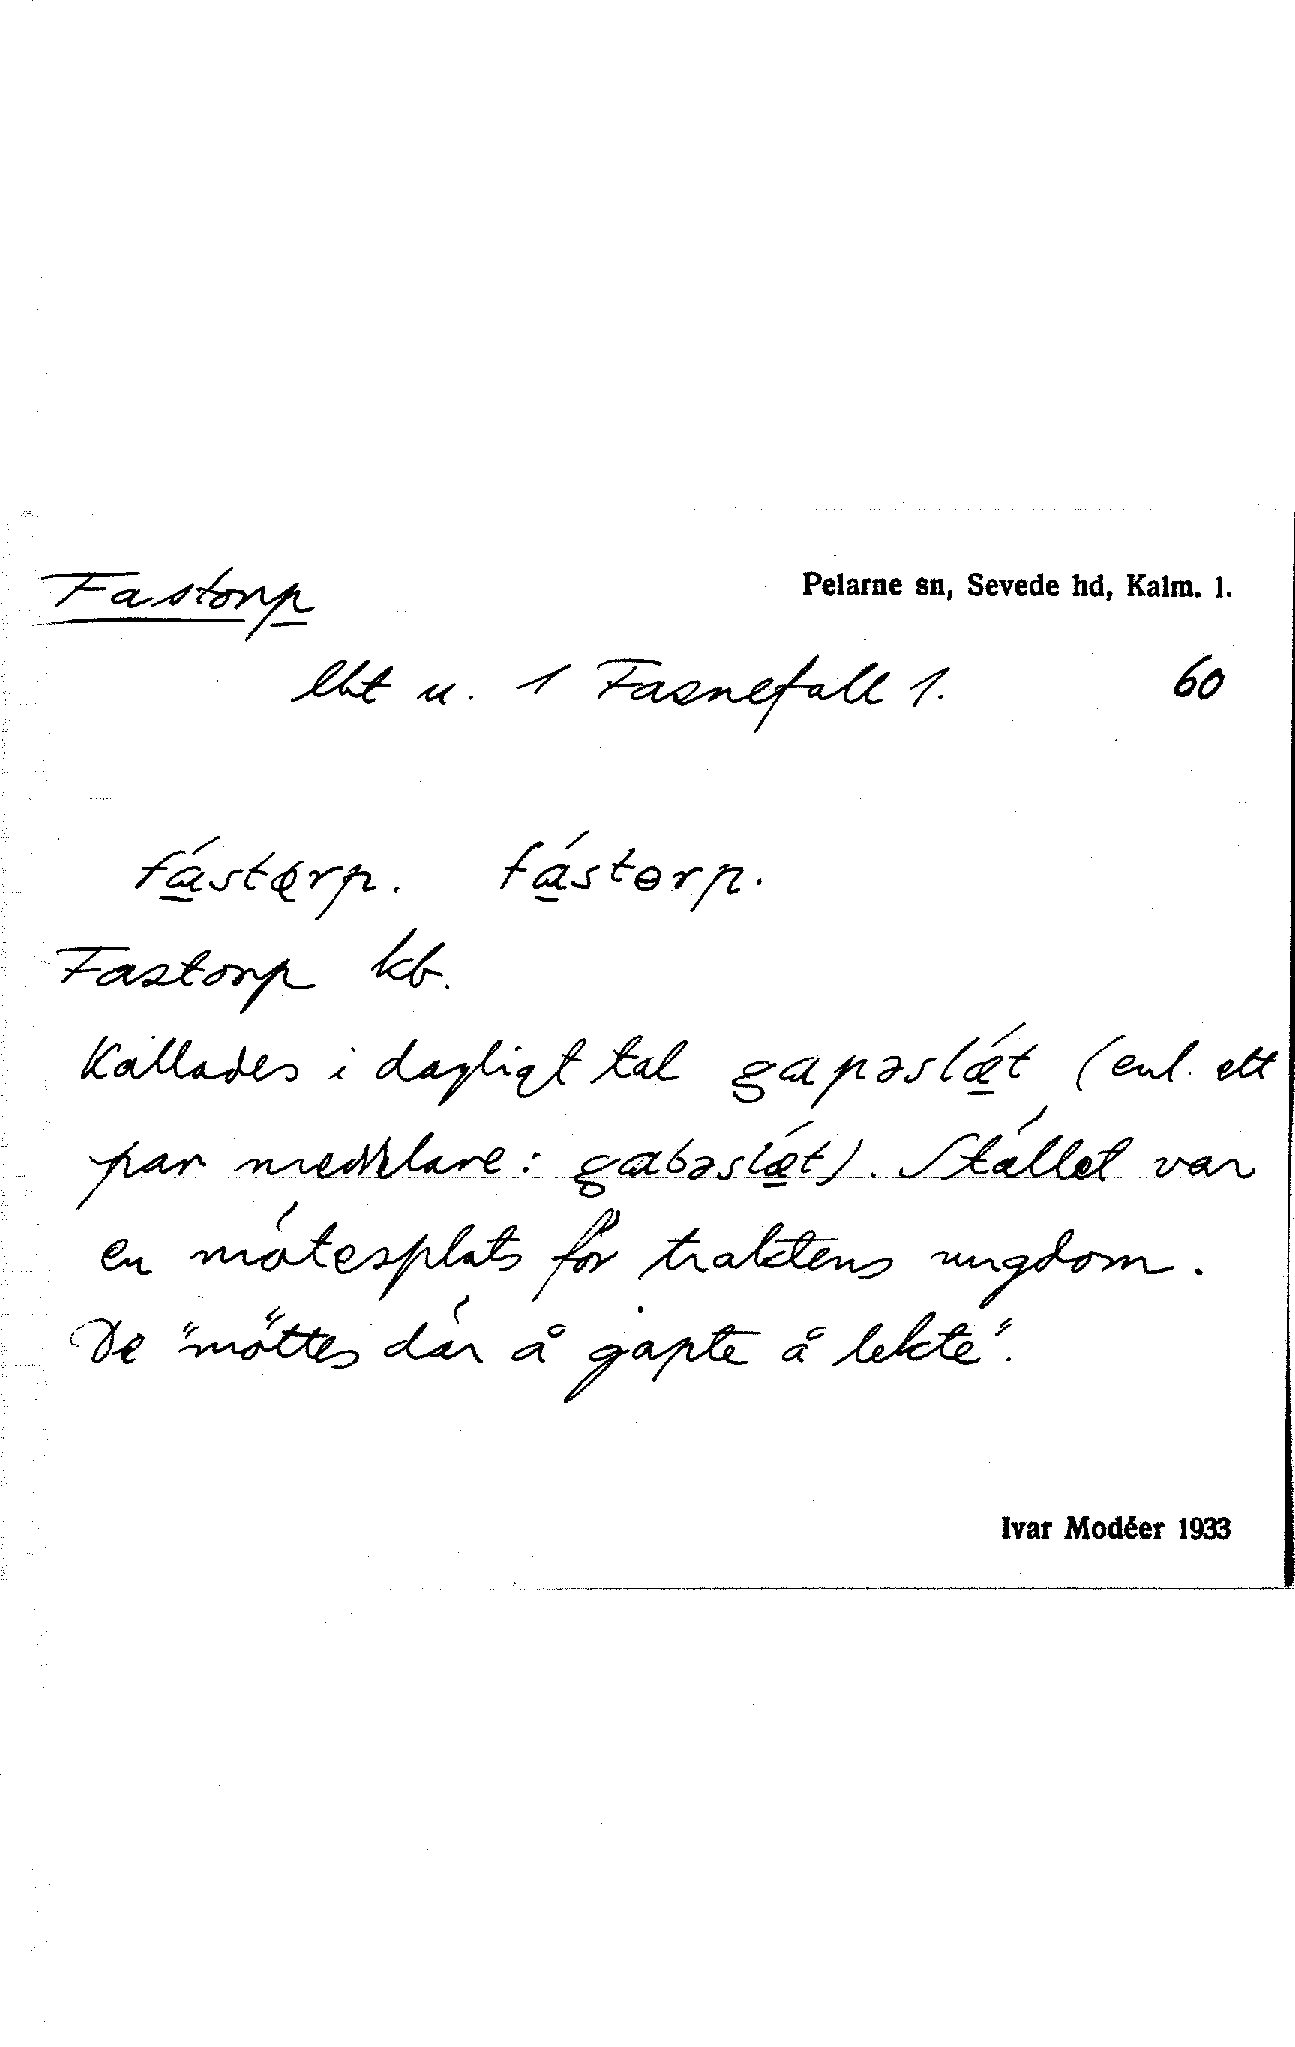 Fastorp
Pelarne sn, Sevede hd, Kalm. l.
lht u. 1 Fasnefall 1. 60
fástørp. fástɵrp.
Fastorp kb.
Kallades i dagligt tal gapəslǽt (enl. ett
par meddelare: gabəslǽt). Stället var
en mötesplats för traktens ungdom.
De "möttes där å gapte å lekte".
Ivar Modéer 1933